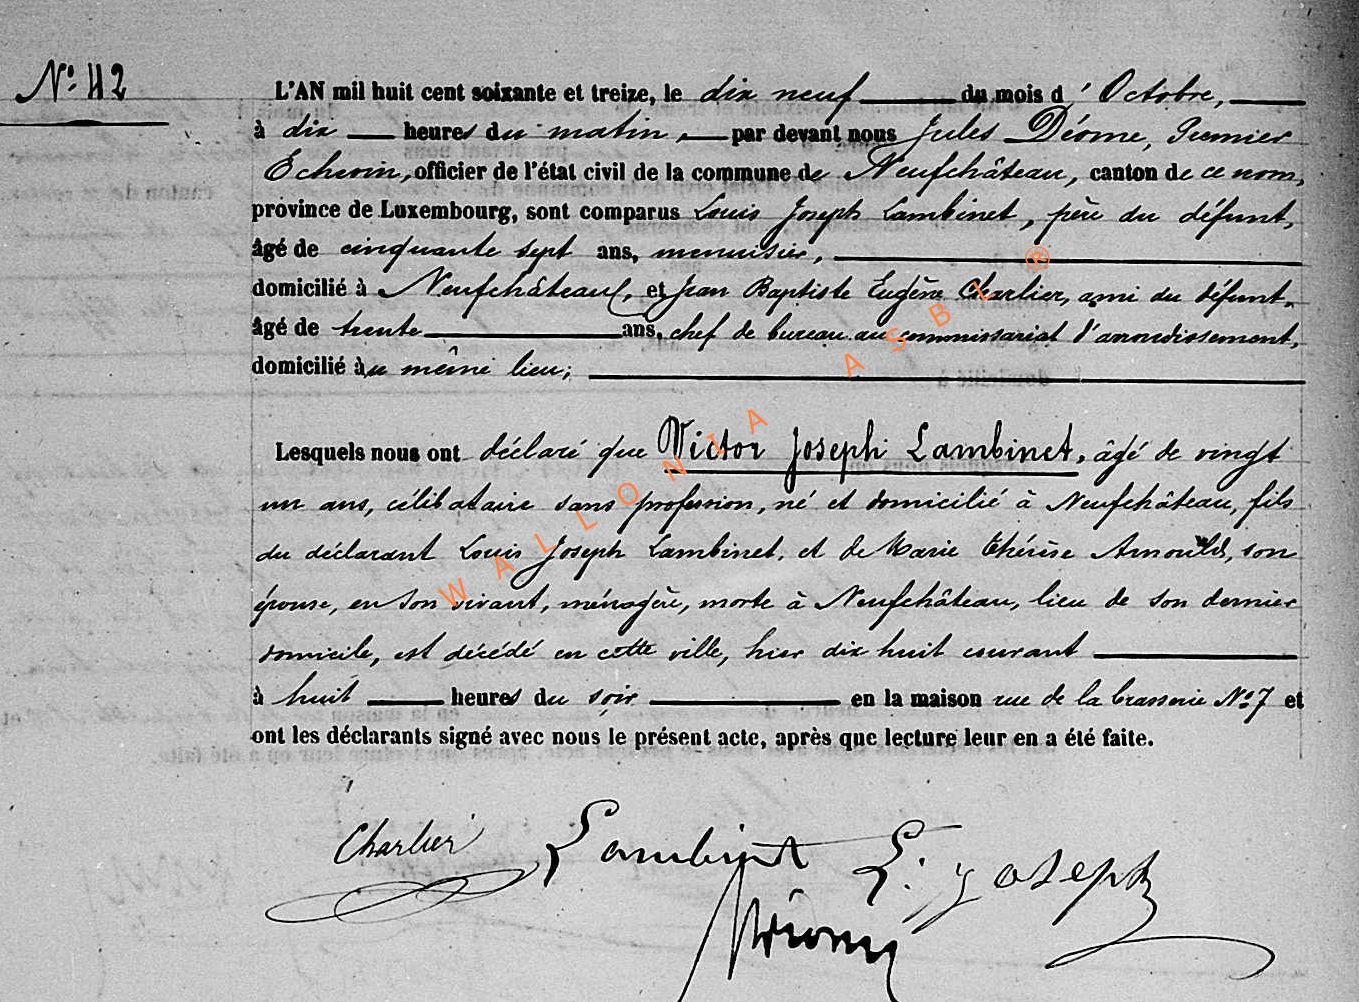 N° 42
L'AN mil huit cent soixante et treize, le dix neuf du mois d'Octobre,
à dix heures du matin, par devant nous Jules Déome, Premier
Echevin, officier de l'état civil de la commune de Neufchâteau, canton de ce nom,
province de Luxembourg, sont comparus Louis Joseph Lambinet, père du défunt,
âgé de cinquante sept ans, menuisier,
domicilié à Neufchâteau, et Jean Baptiste Eugène Charlier, ami du défunt,
âgé de trente ans, chef de bureau au commissariat d'arrondissement,
domicilié au même lieu;
Lesquels nous ont déclaré que Victor Joseph Lambinet, âgé de vingt
un ans, célibataire sans profession, né et domicilié à Neufchâteau, fils
du déclarant Louis Joseph Lambinet, et de Marie Thérèse Arnould, son
épouse, en son vivant, ménagère, morte à Neufchâteau, lieu de son dernier
domicile, est décédé en cette ville, hier dix huit courant
à huit heures du soir en la maison rue de la brasserie N° 7 et
ont les déclarants signé avec nous le présent acte, après que lecture leur en a été faite.
Charlier Lambinet L. Joseph
Déome
WALLONIA ASBL ®